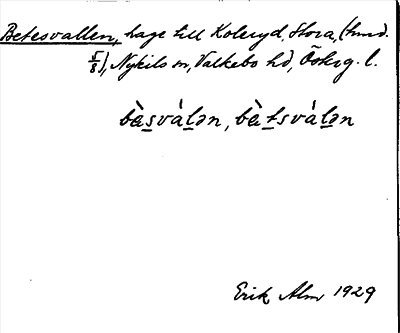 Betesvallen, hage till Koleryd, Stora, (hmd.
5/8), Nykils sn, Valkebo hd, Östergg. l.
bàs̱váḻən, bàṯsváḻən
Erik Alm 1929